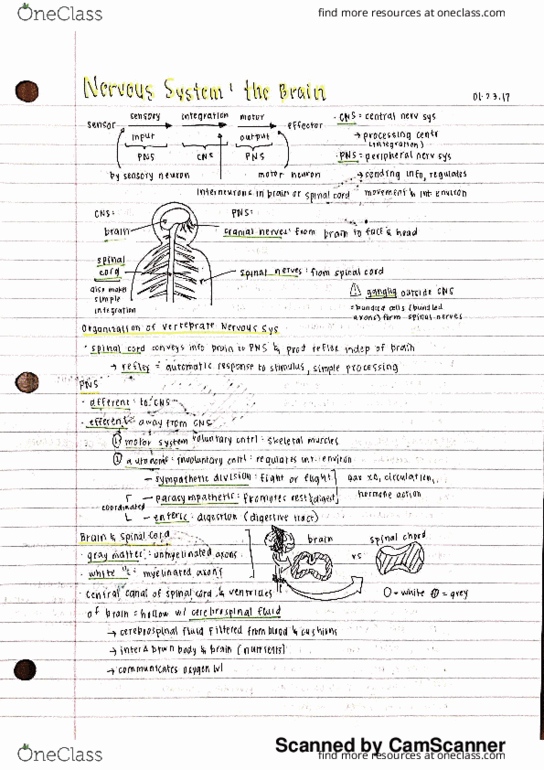 OneClass
find more resources at oneclass.com
Nervous System: the Brain
01.23.17
sensory integration motor
sensor effector
input output
PNS CNS PNS
by sensory neuron motor neuron
interneurons in brain or spinal cord
· CNS = central nerv sys
→ processing centr
(integration)
· PNS = peripheral nerv sys
→ sending info, regulates
movement & int environ
CNS:
PNS:
brain
cranial nerves: from brain to face & head
spinal
cord
also makes
simple
integration
spinal nerves: from spinal cord
ganglia outside CNS
= bundled cells (bundled
axons) form spinal nerves
Organization of Vertebrate Nervous Sys
· spinal cord conveys info brain to PNS & prod reflex indep of brain
→ reflex = automatic response to stimulus, simple processing
PNS
· afferent: to CNS
· efferent: away from CNS
① motor system voluntary cntrl: skeletal muscles
② autonomic: involuntary cntrl: regulates int. environ
— sympathetic division: fight or flight
— parasympathetic: promotes rest/digest
gas xc, circulation,
hormone action
coordinated
— enteric: digestion (digestive tract)
Brain & Spinal Cord
· gray matter: unmyelinated axons
· white " : myelinated axons
brain
vs
spinal chord
O = white = grey
· central canal of spinal cord & ventricles
of brain = hollow w/ cerebrospinal fluid
→ cerebrospinal fluid filtered from blood & cushions
→ inter∆ btwn body & brain (nutrients)
→ communicates oxygen w/
Scanned by CamScanner
OneClass
find more resources at oneclass.com